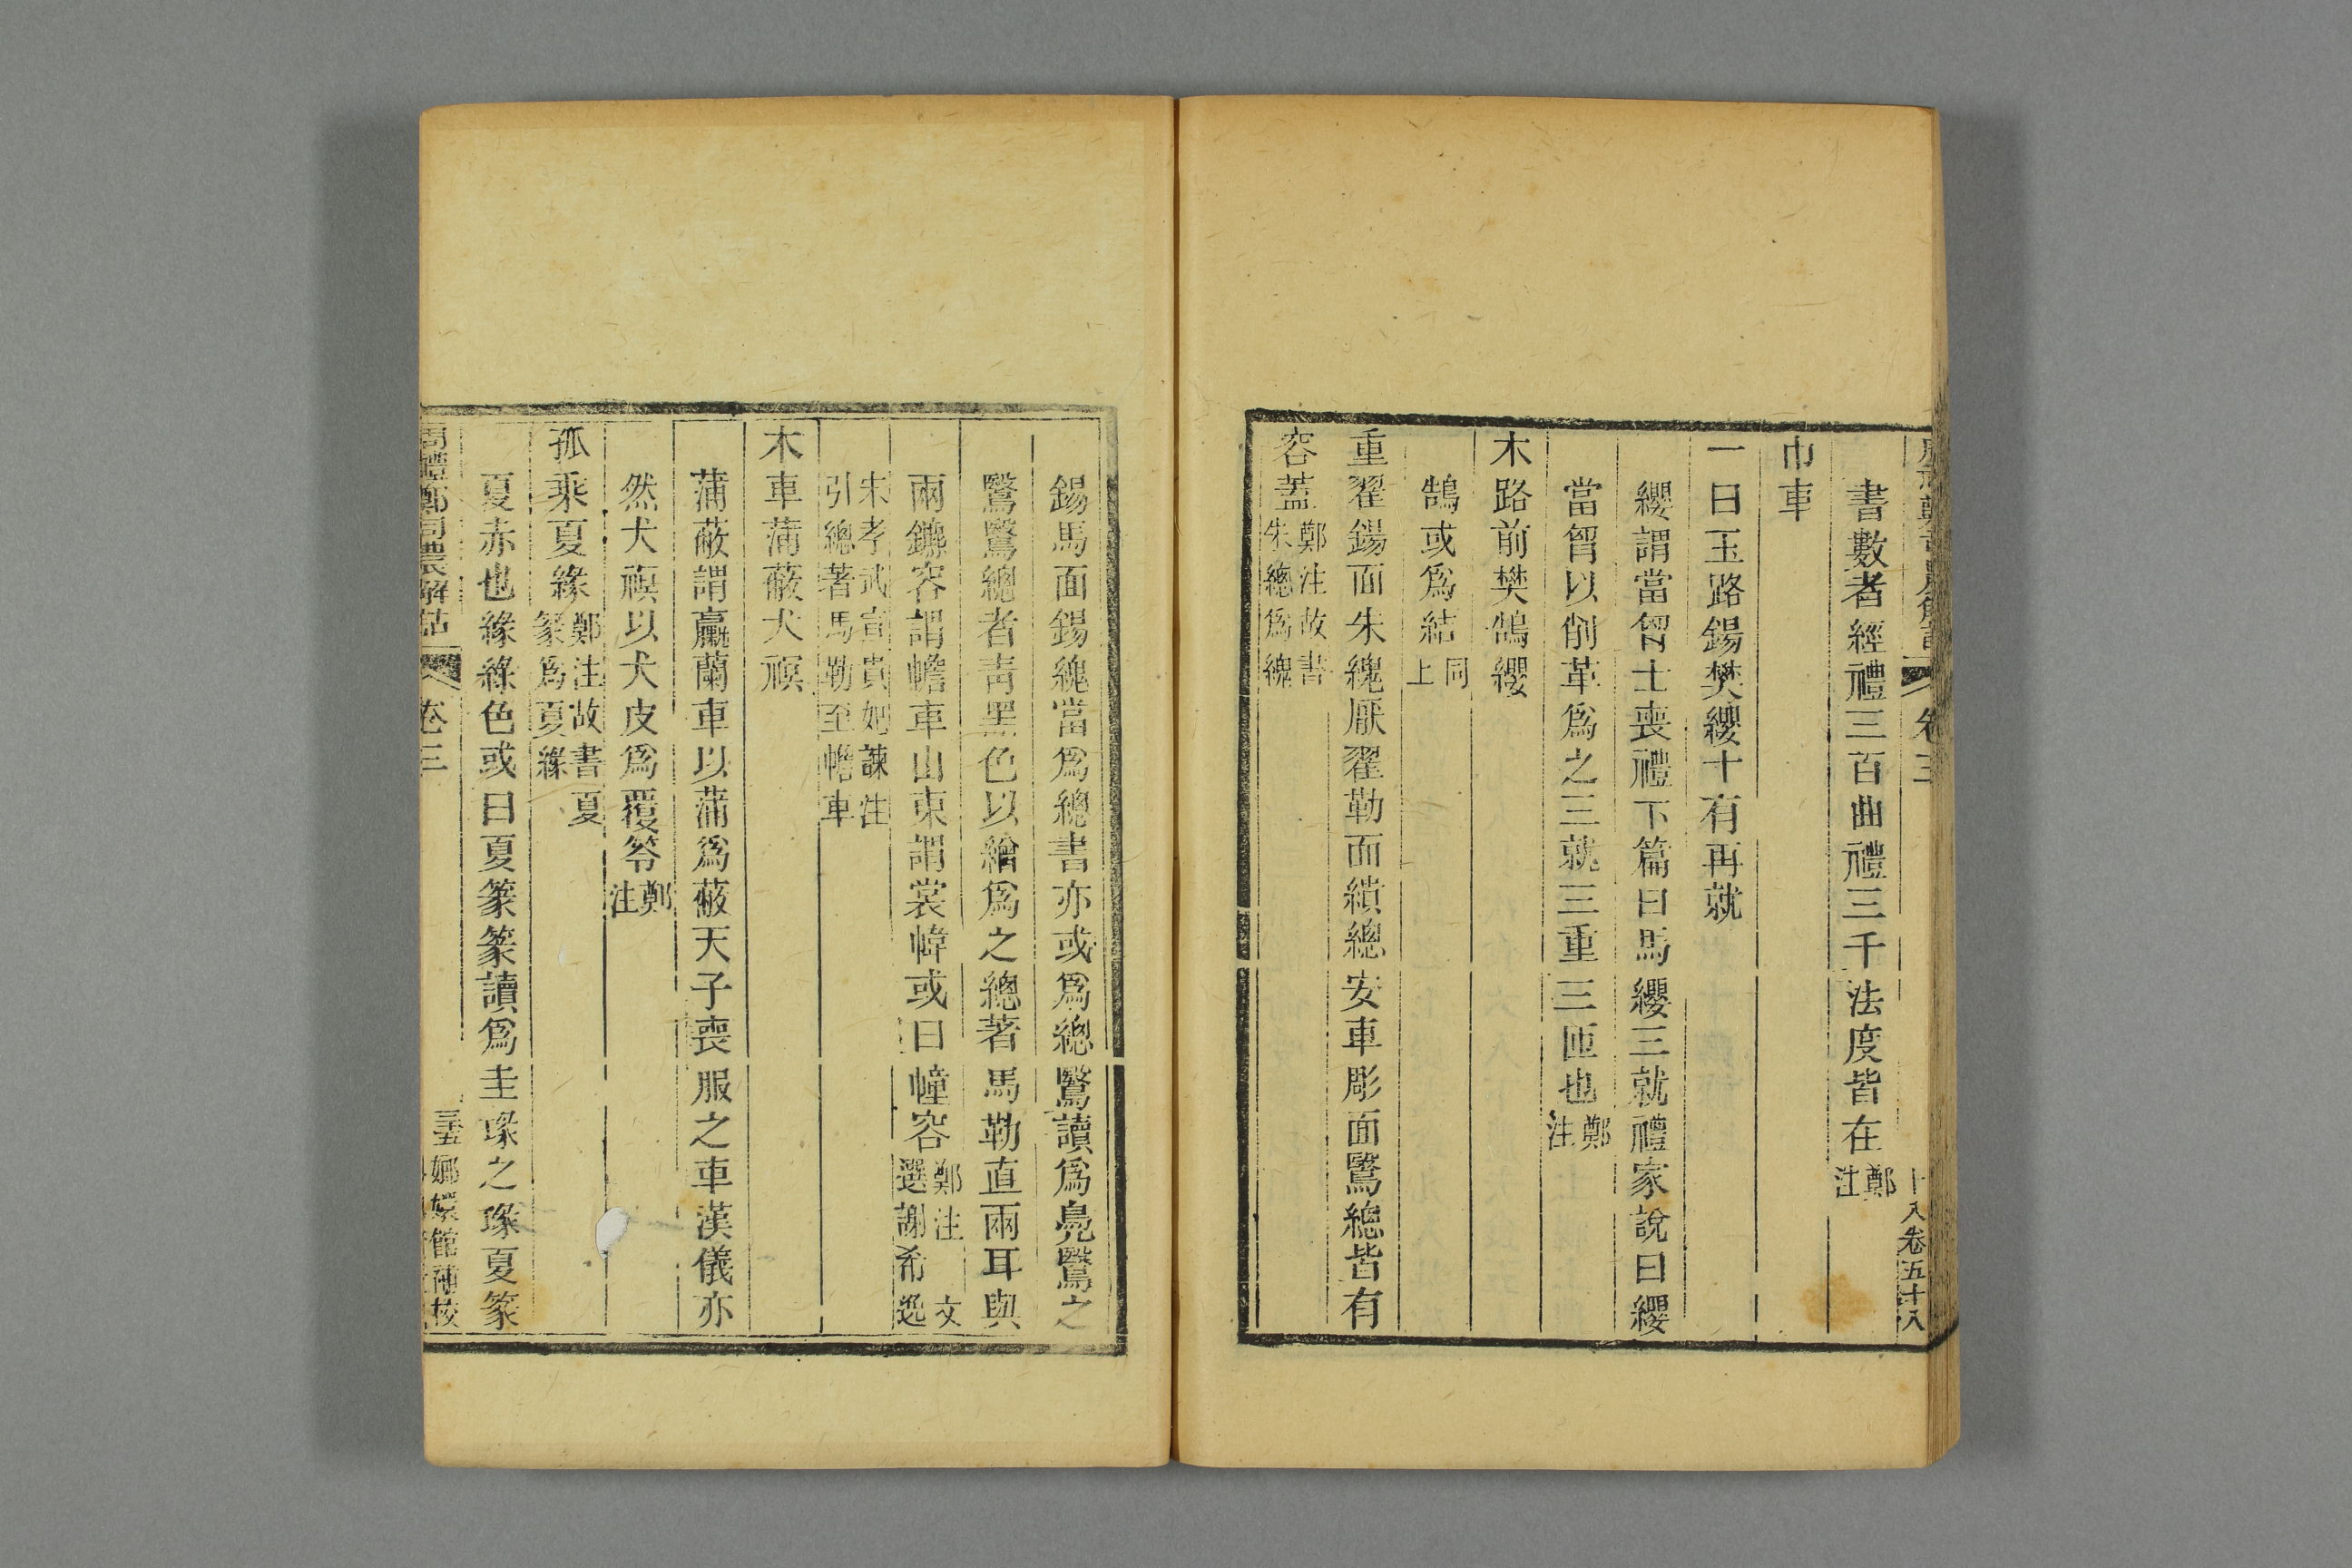 書數者經禮三百曲禮三千法度皆在鄭注
巾車
一曰玉路鍚樊纓十有再就
纓謂當胷士喪禮下篇曰馬纓三就禮家說曰纓
當胷以削革爲之三就三重三匝也鄭注
木路前樊鵠纓
鵠或爲結同上
重翟鍚面朱緫厭翟勒面繢總安車彫面鷖總皆有
容蓋鄭注故書朱總爲緫
鍚馬面鍚緫當爲總書亦或爲總鷖讀爲鳧鷖之
鷖鷖總者青黑色以繒爲之總著馬勒直兩耳與
兩鑣容謂幨車山東謂裳幃或曰幢容鄭注文選謝希逸
宋孝武宣貴妃誄注引總著馬勒至幨車
木車蒲蔽犬𧜀
蒲蔽謂𦣄蘭車以蒲爲蔽天子喪服之車漢儀亦
然犬𧜀以犬皮爲覆笭鄭注
孤乘夏緣鄭注故書夏篆爲夏緣
夏赤也緣綠色或曰夏篆篆讀爲圭瑑之瑑夏篆
周禮鄭司農解詁 卷三 嫏嬛館補校